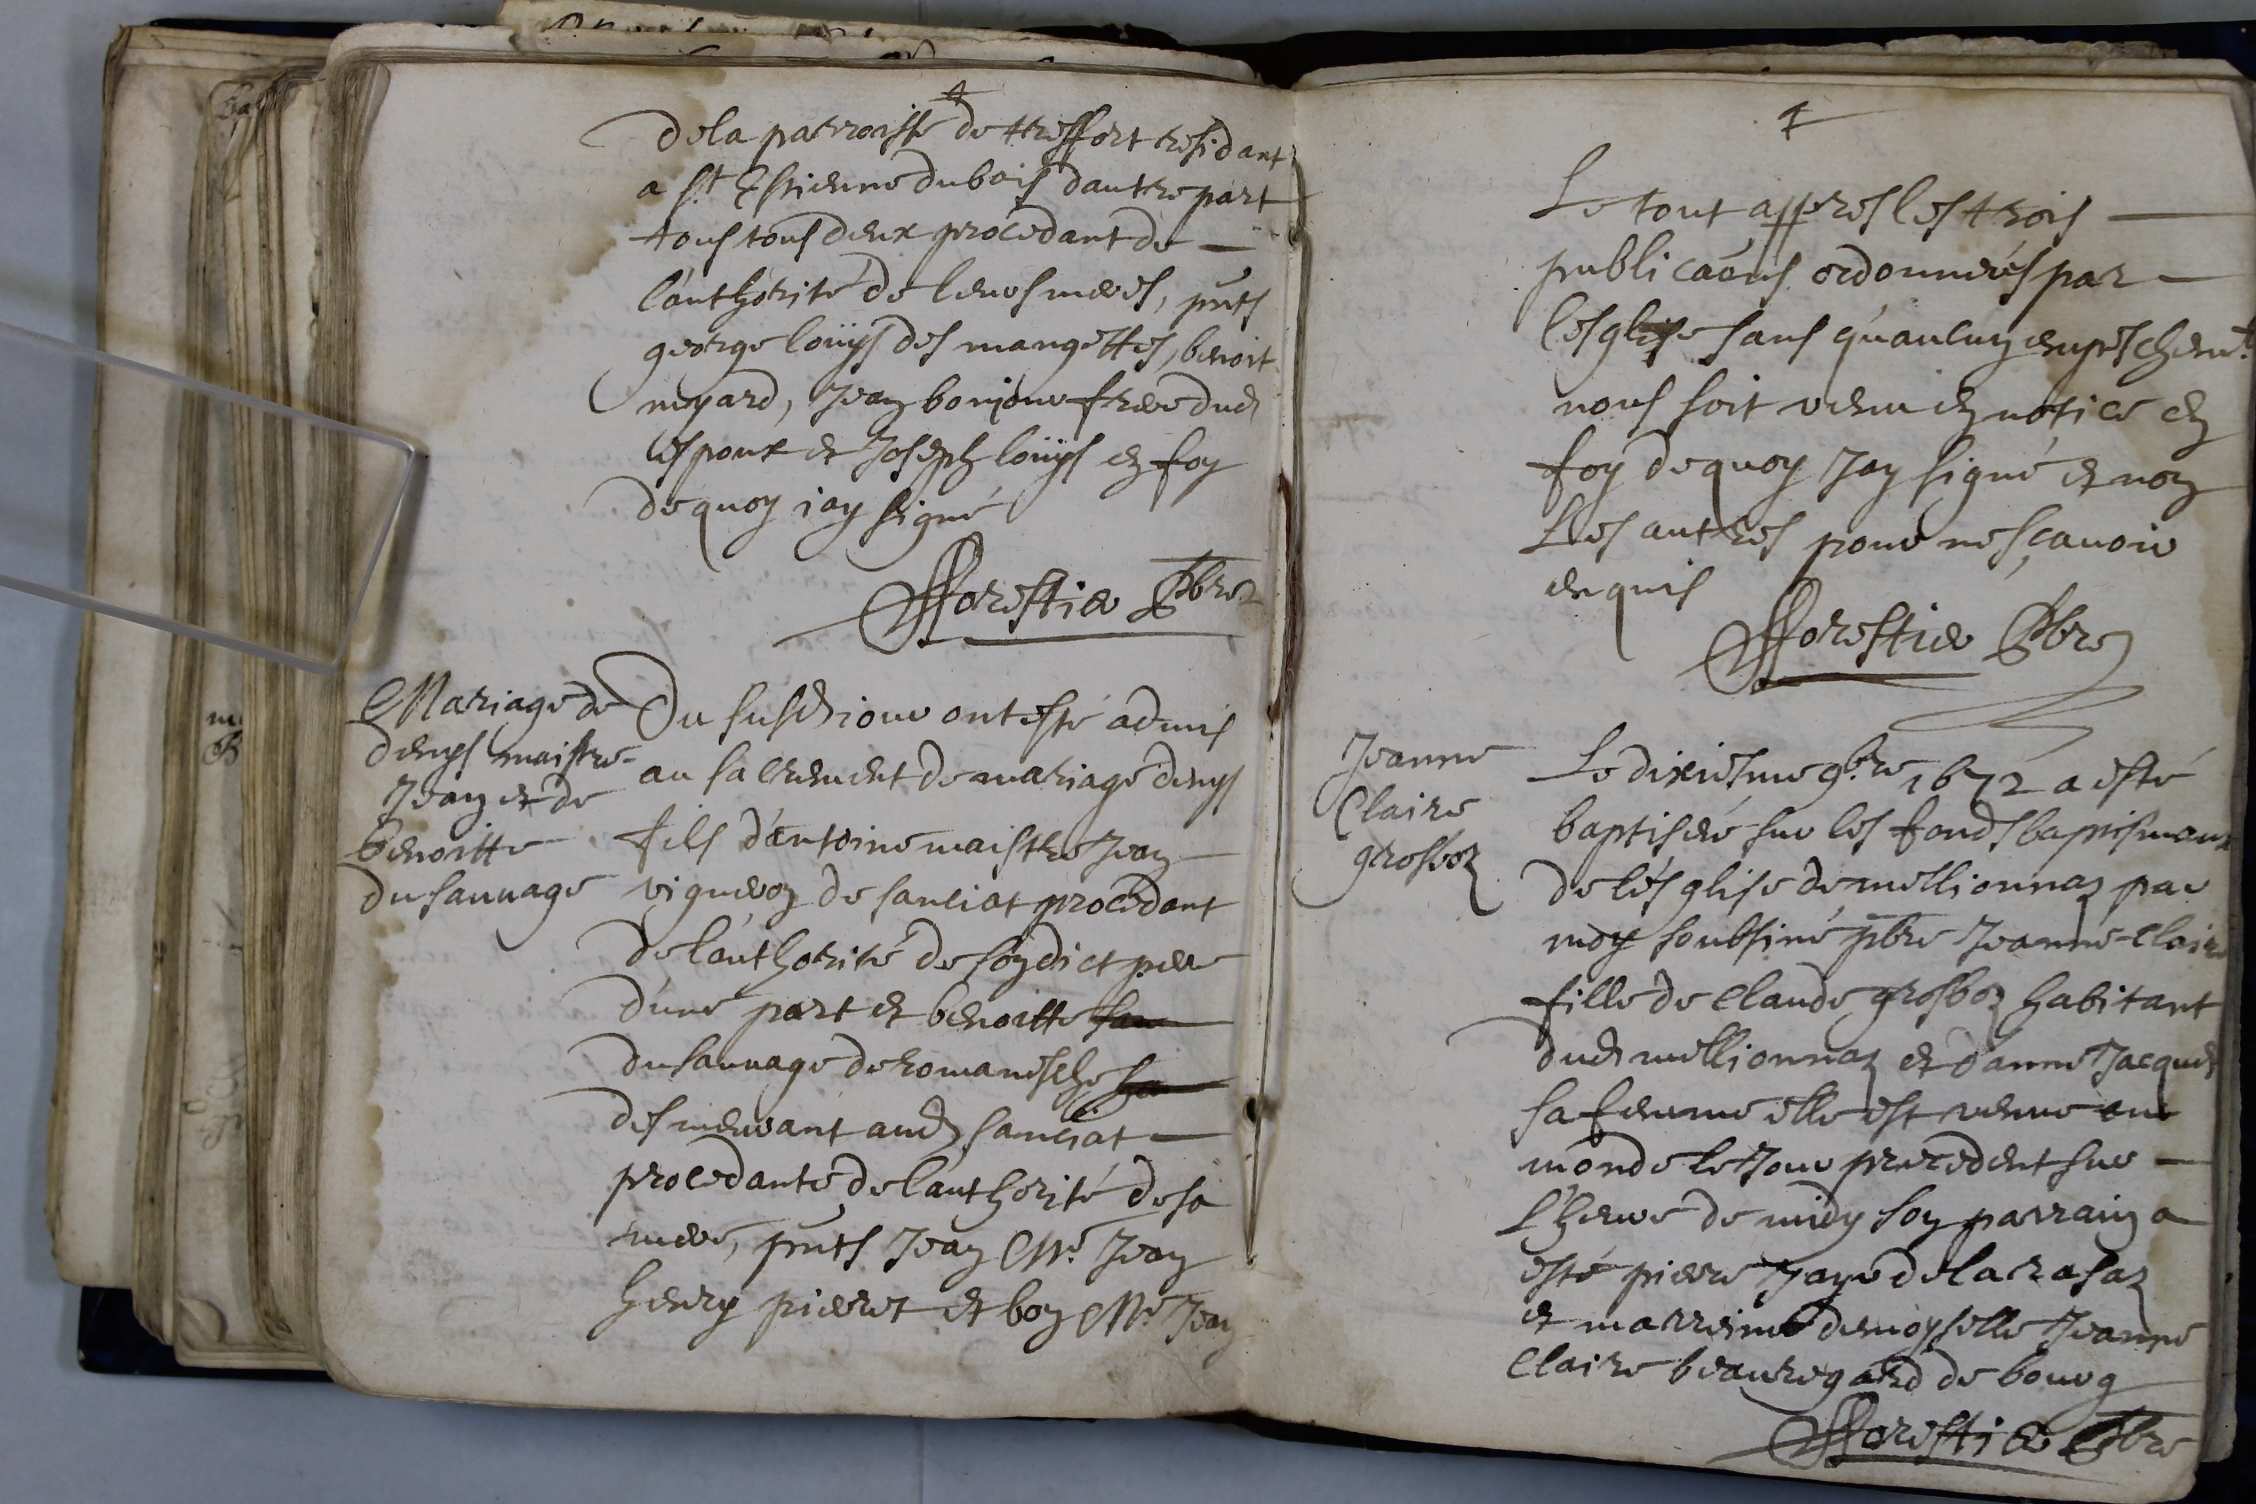 dela parroisse de treffort residant
a st Estienne dubois dautre part
tous tous deux procedant de
lauthórité de leurs meres, pnts
george loüys des mangettes, benoit
nyard, Jean bonjour frere dud
espoux et Joseph loüys en foy
dequoy iay signé
fforestier pbre
Mariage de
denys maistre
Jean et de
benoitte
du sauuage
Du susd iour ont esté admis
au sacrement de mariage denys
fils d'antoine maistre Jean
vigneron de sanciat procedant
de láuthorité de son dict pere
dune part et benoitte
du sauuage de romanesche
desmeurant aud sanciat
procedante de láuthorité de sa
mere, pnts Jean Me Jean
henry pierret et bon Me Jean
Le tout appres les trois
publicaõns ordonneés par
lesglise sans quaucun empeschemt
nous soit venu en notice en
foy dequoy Jay signé et non
Les autres pour ne sçauoir
enquis
fforestier pbre
Jeanne
Claire
grosbon
Le dixiesme 9bre 1672 a esté
baptiseé sur les fonds baptismaux
de lésglise de meillionnaz par
moy soubsiné pbre Jeanne-Claire
fille de Claude grosbon habitant
dud meillionnaz et d'anne Jacquet
sa femme elle est venue au
monde le Jour precedent sur
l'heure de midy son parrain a
esté pierre Jayé de la rasaz
et marreine demoyselle Jeanne
Claire beauregard de bourg
fforestier pbre